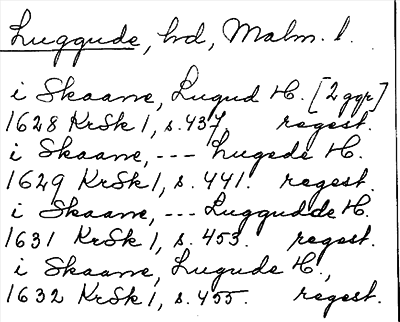 Luggude, hd, Malm. l.
i Skaane, Lugud H. [2 ggr]
1628 KrSk 1, s. 437. regest.
i Skaane, --- Lugede H.
1629 KrSk 1, s. 441. regest.
i Skaane, --- Luggudde H.
1631 KrSk 1, s. 453. regest.
i Skaane, Lugude H.,
1632 KrSk 1, s. 455. regest.